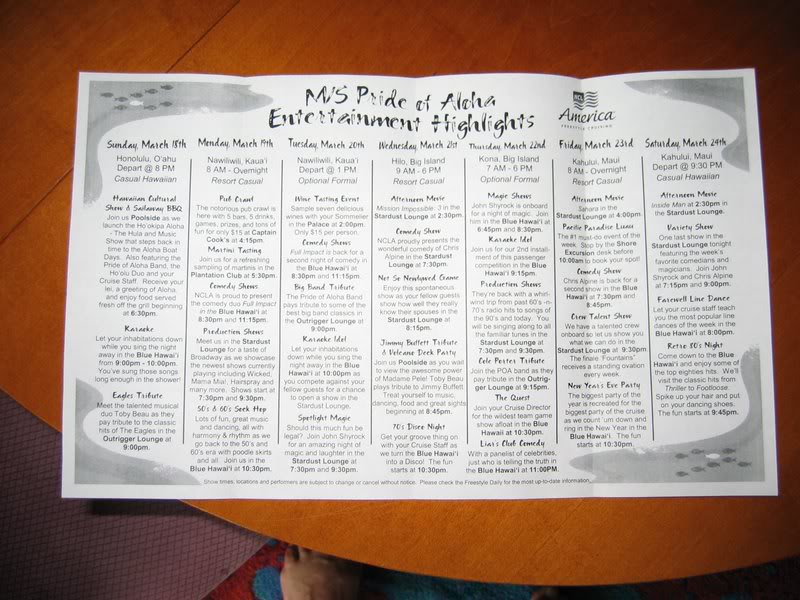 M/S Pride of Aloha
Entertainment Highlights
NCL
America
FREESTYLE CRUISING
Sunday, March 18th
Honolulu, O'ahu
Depart @ 8 PM
Casual Hawaiian
Hawaiian Cultural
Show & Sailaway BBQ
Join us Poolside as we
launch the Ho'okipa Aloha
- The Hula and Music
Show that steps back in
time to the Aloha Boat
Days. Also featuring the
Pride of Aloha Band, the
Ho'olu Duo and your
Cruise Staff. Receive your
lei, a greeting of Aloha,
and enjoy food served
fresh off the grill beginning
at 6:30pm.
Karaoke
Let your inhabitations down
while you sing the night
away in the Blue Hawai'i
from 9:00pm - 10:00pm.
You've sung those songs
long enough in the shower!
Eagles Tribute
Meet the talented musical
duo Toby Beau as they
pay tribute to the classic
hits of The Eagles in the
Outrigger Lounge at
9:00pm.
Monday, March 19th
Nawiliwili, Kaua'i
8 AM - Overnight
Resort Casual
Pub Crawl
The notorious pub crawl is
here with 5 bars, 5 drinks,
games, prizes, and tons of
fun for only $15 at Captain
Cook's at 4:15pm.
Martini Tasting
Join us for a refreshing
sampling of martinis in the
Plantation Club at 5:30pm.
Comedy Shows
NCLA is proud to present
the comedy duo Full Impact
in the Blue Hawai'i at
8:30pm and 11:15pm.
Production Shows
Meet us in the Stardust
Lounge for a taste of
Broadway as we showcase
the newest shows currently
playing including Wicked,
Mama Mia!, Hairspray and
many more. Shows start at
7:30pm and 9:30pm.
50's & 60's Sock Hop
Lots of fun, great music
and dancing, all with
harmony & rhythm as we
go back to the 50's and
60's era with poodle skirts
and all. Join us in the
Blue Hawai'i at 10:30pm.
Tuesday, March 20th
Nawiliwili, Kaua'i
Depart @ 1 PM
Optional Formal
Wine Tasting Event
Sample seven delicious
wines with your Sommelier
in the Palace at 2:00pm.
Only $15 per person.
Comedy Shows
Full Impact is back for a
second night of comedy in
the Blue Hawai'i at
8:30pm and 11:15pm.
Big Band Tribute
The Pride of Aloha Band
pays tribute to some of the
best big band classics in
the Outrigger Lounge at
9:00pm.
Karaoke Idol
Let your inhabitations down
while you sing the night
away in the Blue Hawai'i
at 10:00pm as you
compete against your
fellow guests for a chance
to open a show in the
Stardust Lounge.
Spotlight Magic
Should this much fun be
legal? Join John Shyrock
for an amazing night of
magic and laughter in the
Stardust Lounge at
7:30pm and 9:30pm.
Wednesday, March 21st
Hilo, Big Island
9 AM - 6 PM
Resort Casual
Afternoon Movie
Mission Impossible: 3 in the
Stardust Lounge at 2:30pm.
Comedy Show
NCLA proudly presents the
wonderful comedy of Chris
Alpine in the Stardust
Lounge at 7:30pm.
Not So Newlywed Game
Enjoy this spontaneous
show as your fellow guests
show how well they really
know their spouses in the
Stardust Lounge at
8:15pm.
Jimmy Buffett Tribute
& Volcano Deck Party
Join us Poolside as you wait
to view the awesome power
of Madame Pele! Toby Beau
plays tribute to Jimmy Buffett.
Treat yourself to music,
dancing, food and great sights
beginning at 8:45pm.
70's Disco Night
Get your groove thing on
with your Cruise Staff as
we turn the Blue Hawai'i
into a Disco! The fun
starts at 10:30pm.
Thursday, March 22nd
Kona, Big Island
7 AM - 6 PM
Optional Formal
Magic Shows
John Shyrock is onboard
for a night of magic. Join
him in the Blue Hawai'i at
6:45pm and 8:30pm.
Karaoke Idol
Join us for our 2nd install-
ment of this passenger
competition in the Blue
Hawai'i 9:15pm.
Production Shows
They're back with a whirl-
wind trip from past 60's -n-
70's radio hits to songs of
the 90's and today. You
will be singing along to all
the familiar tunes in the
Stardust Lounge at
7:30pm and 9:30pm.
Cole Porter Tribute
Join the POA band as they
pay tribute in the Outrig-
ger Lounge at 9:15pm.
The Quest
Join your Cruise Director
for the wildest team game
show afloat in the Blue
Hawai'i at 10:30pm.
Liar's Club Comedy
With a panelist of celebrities,
just who is telling the truth in
the Blue Hawai'i at 11:00PM.
Friday, March 23rd
Kahului, Maui
8 AM - Overnight
Resort Casual
Afternoon Movie
Sahara in the Stardust
Lounge at 4:00pm.
Pacific Paradise Luau
The #1 must-do event of the
week. Stop by the Shore
Excursion desk before
10:00am to book your spot!
Comedy Show
Chris Alpine is back for a
second show in the Blue
Hawai'i at 7:30pm and
8:45pm.
Crew Talent Show
We have a talented crew
onboard so let us show you
what we can do in the
Stardust Lounge at 9:30pm.
The finale "Fountains"
receives a standing ovation
every week.
New Year's Eve Party
The biggest party of the
year is recreated for the
biggest party of the cruise
as we count 'um down and
ring in the New Year in the
Blue Hawai'i. The fun
starts at 10:30pm.
Saturday, March 24th
Kahului, Maui
Depart @ 9:30 PM
Casual Hawaiian
Afternoon Movie
Inside Man at 2:30pm in
the Stardust Lounge.
Variety Show
One last show in the
Stardust Lounge tonight
featuring the week's
favorite comedians and
magicians. Join John
Shyrock and Chris Alpine
at 7:15pm and 9:00pm.
Farewell Line Dance
Let your cruise staff teach
you the most popular line
dances of the week in the
Blue Hawai'i at 8:00pm.
Retro 80's Night
Come down to the Blue
Hawai'i and enjoy some of
the top eighties hits. We'll
visit the classic hits from
Thriller to Footloose.
Spike up your hair and put
on your dancing shoes.
The fun starts at 9:45pm.
Show times, locations and performers are subject to change or cancel without notice. Please check the Freestyle Daily for the most up-to-date information.